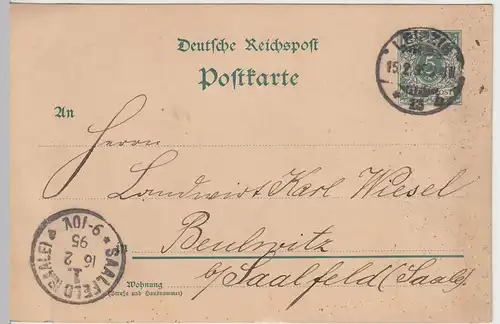 Deutsche Reichspost
Postkarte
LEIPZIG
15.2
5
23 b
An
Herrn
Landwirt Karl Wiesel
in Beulwitz
b/Saalfeld (Saale)
SAALFELD (SAALE)
1.
16 2
95
9-10V
Wohnung
(Straße und Hausnummer)